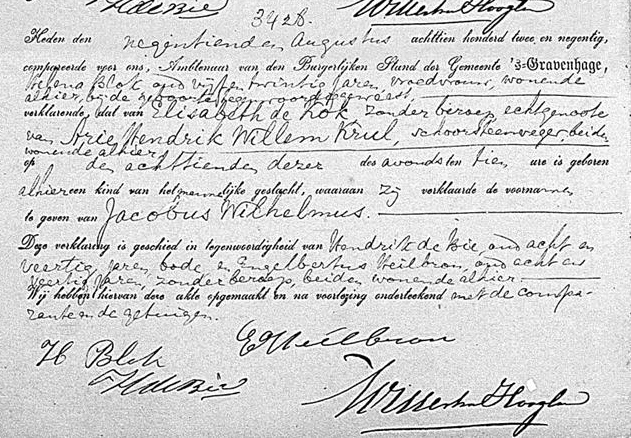 HdeBie
Willester Hoogla
3428.
Heden den negentienden Augustus achttien honderd twee en negentig,
compareerde voor ons, Ambtenaar van den Burgerlijken Stand der Gemeente 's-Gravenhage,
Helena Blok oud vijf en twintig Jaren, vroedvrouw, wonende
alhier, bij de geboorte tegenwoordig geweest
verklarende, dat van Elisabeth de Kok zonder beroep, echtgenoote
van Arie Hendrik Willem Krul, schoorsteenveger, beiden
wonende alhier
op den achttienden dezer des avonds ten tien ure is geboren
alhier een kind van het mannelijke geslacht, waaraan zij verklaarde de voornamen
te geven van Jacobus Wilhelmus.
Deze verklaring is geschied in tegenwoordigheid van Hendrik de Bie, oud acht en
veertig Jaren, bode, en Engelbertus Heilbron, oud acht en
veertig Jaren, zonder beroep, beiden wonende alhier
Wij hebben hiervan deze akte opgemaakt en na voorlezing onderteekend met de compa-
rante en de getuigen.
H Blok
EHeilbron
HdeBie